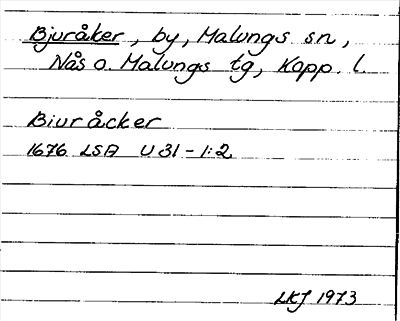 Bjuråker, by, Malungs sn,
Nås o. Malungs tg, Kopp. l.
Biur åcker
1676 LSA U 31 - 1:2
LKJ 1973